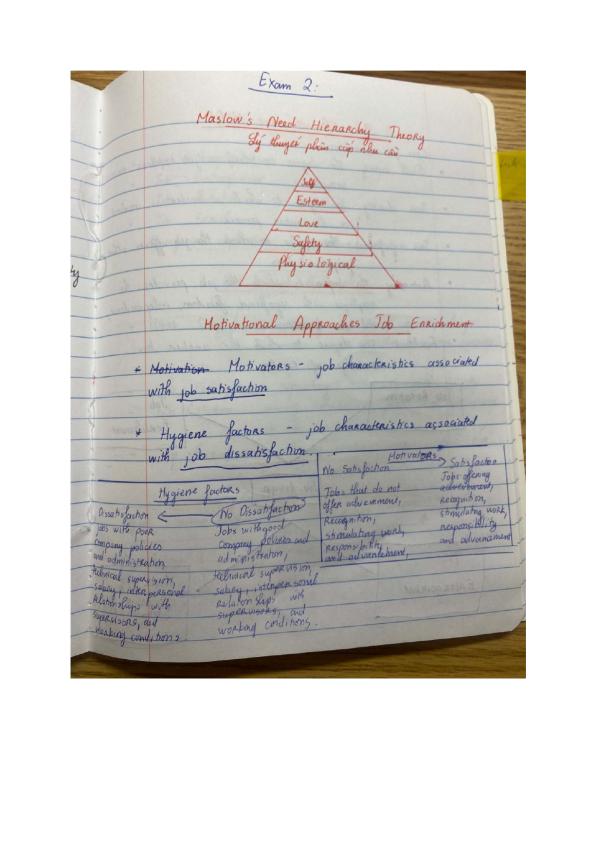 Exam 2:
Maslow's Need Hierarchy Theory
Lý thuyết phân cấp nhu cầu
Self
Esteem
Love
Safety
Physiological
Motivational Approaches Job Enrichment
* Motivation Motivators - job characteristics associated
with job satisfaction
* Hygiene factors - job characteristics associated
with job dissatisfaction.
Motivators
No Satisfaction
Satisfaction
Jobs that do not
offer advancement,
Recognition,
stimulating work,
Responsibility
and advancement,
Jobs offering
advancement,
Recognition,
stimulating work,
responsibility
and advancement
Hygiene factors
Dissatisfaction
No Dissatisfaction
Jobs with poor
Company policies
and administration,
technical supervision,
salary, interpersonal
relationships with
supervisors, and
working conditions.
Jobs with good
Company policies and
administration,
technical supervision,
salary, interpersonal
Relationships with
supervisors, and
working conditions.